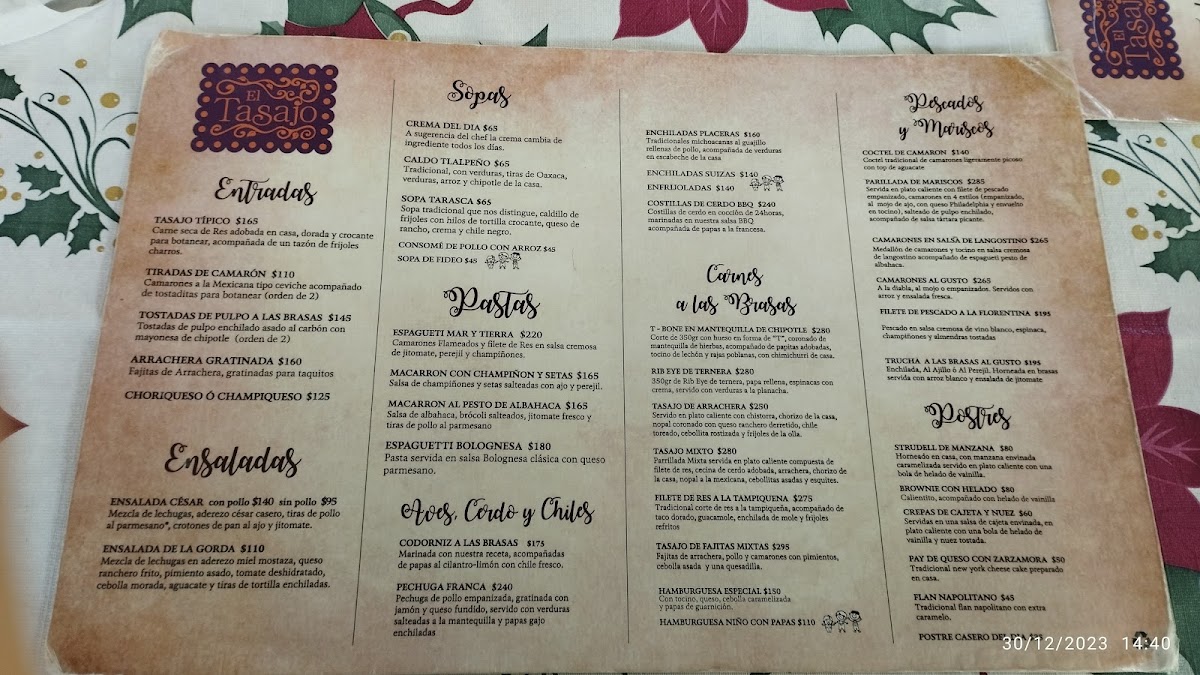 El
Tasajo
Entradas
TASAJO TÍPICO $165
Carne seca de Res adobada en casa, dorada y crocante
para botanear, acompañada de un tazón de frijoles
charros.
TIRADAS DE CAMARÓN $110
Camarones a la Mexicana tipo ceviche acompañado
de tostaditas para botanear (orden de 2)
TOSTADAS DE PULPO A LAS BRASAS $145
Tostadas de pulpo enchilado asado al carbón con
mayonesa de chipotle (orden de 2)
ARRACHERA GRATINADA $160
Fajitas de Arrachera, gratinadas para taquitos
CHORIQUESO Ó CHAMPIQUESO $125
Ensaladas
ENSALADA CÉSAR con pollo $140 sin pollo $95
Mezcla de lechugas, aderezo césar casero, tiras de pollo
al parmesano*, crotones de pan al ajo y jitomate.
ENSALADA DE LA GORDA $110
Mezcla de lechugas en aderezo miel mostaza, queso
ranchero frito, pimiento asado, tomate deshidratado,
cebolla morada, aguacate y tiras de tortilla enchiladas.
Sopas
CREMA DEL DIA $65
A sugerencia del chef la crema cambia de
ingrediente todos los días.
CALDO TLALPEÑO $65
Tradicional, con verduras, tiras de Oaxaca,
verduras, arroz y chipotle de la casa.
SOPA TARASCA $65
Sopa tradicional que nos distingue, caldillo de
frijoles con hilos de tortilla crocante, queso de
rancho, crema y chile negro.
CONSOMÉ DE POLLO CON ARROZ $45
SOPA DE FIDEO $48
Pastas
ESPAGUETI MAR Y TIERRA $220
Camarones Flameados y filete de Res en salsa cremosa
de jitomate, perejil y champiñones.
MACARRON CON CHAMPIÑON Y SETAS $165
Salsa de champiñones y setas salteadas con ajo y perejil.
MACARRON AL PESTO DE ALBAHACA $165
Salsa de albahaca, brócoli salteados, jitomate fresco y
tiras de pollo al parmesano
ESPAGUETTI BOLOGNESA $180
Pasta servida en salsa Bolognesa clásica con queso
parmesano.
Aves, Cerdo y Chiles
CODORNIZ A LAS BRASAS $175
Marinada con nuestra receta, acompañadas
de papas al cilantro-limón con chile fresco.
PECHUGA FRANCA $240
Pechuga de pollo empanizada, gratinada con
jamón y queso fundido, servido con verduras
salteadas a la mantequilla y papas gajo
enchiladas
ENCHILADAS PLACERAS $160
Tradicionales michoacanas al guajillo
rellenas de pollo, acompañada de verduras
en escabeche de la casa
ENCHILADAS SUIZAS $140
ENFRIJOLADAS $140
COSTILLAS DE CERDO BBQ $240
Costillas de cerdo en cocción de 24horas,
marinadas en nuestra salsa BBQ
acompañada de papas a la francesa.
Carnes
a las Brasas
T - BONE EN MANTEQUILLA DE CHIPOTLE $280
Corte de 350gr con hueso en forma de "T", coronado de
mantequilla de hierbas, acompañado de papitas adobadas,
tocino de lechón y rajas poblanas, con chimichurri de casa.
RIB EYE DE TERNERA $280
350gr de Rib Eye de ternera, papa rellena, espinacas con
crema, servido con verduras a la planacha.
TASAJO DE ARRACHERA $250
Servido en plato caliente con chistorra, chorizo de la casa,
nopal coronado con queso ranchero derretido, chile
toreado, cebollita rostizada y frijoles de la olla.
TASAJO MIXTO $280
Parrillada Mixta servida en plato caliente compuesta de
filete de res, cecina de cerdo adobada, arrachera, chorizo de
la casa, nopal a la mexicana, cebollitas asadas y esquites.
FILETE DE RES A LA TAMPIQUENA $275
Tradicional corte de res a la tampiqueña, acompañado de
taco dorado, guacamole, enchilada de mole y frijoles
refritos
TASAJO DE FAJITAS MIXTAS $295
Fajitas de arrachera, pollo y camarones con pimientos,
cebolla asada y una quesadilla.
HAMBURGUESA ESPECIAL $150
Con tocino, queso, cebolla caramelizada
y papas de guarnición.
HAMBURGUESA NIÑO CON PAPAS $110
Pescados
y Mariscos
COCTEL DE CAMARON $140
Coctel tradicional de camarones ligeramente picoso
con top de aguacate
PARILLADA DE MARISCOS $285
Servida en plato caliente con filete de pescado
empanizado, camarones en 4 estilos (empanizado,
al mojo de ajo, con queso Philadelphia y envuelto
en tocino), salteado de pulpo enchilado,
acompañado de salsa tártara picante.
CAMARONES EN SALSA DE LANGOSTINO $265
Medallón de camarones y tocino en salsa cremosa
de langostino acompañado de espagueti pesto de
albahaca.
CAMARONES AL GUSTO $265
A la diabla, al mojo o empanizados. Servidos con
arroz y ensalada fresca.
FILETE DE PESCADO A LA FLORENTINA $195
Pescado en salsa cremosa de vino blanco, espinaca,
champiñones y almendras tostadas
TRUCHA A LAS BRASAS AL GUSTO $195
Enchilada, Al Ajillo ó Al Perejil. Horneada en brasas
servida con arroz blanco y ensalada de jitomate
Postres
STRUDELL DE MANZANA $80
Horneado en casa, con manzana envinada
caramelizada servido en plato caliente con una
bola de helado de vainilla.
BROWNIE CON HELADO $80
Calientito, acompañado con helado de vainilla
CREPAS DE CAJETA Y NUEZ $60
Servidas en una salsa de cajeta envinada, en
plato caliente con una bola de helado de
vainilla y nuez tostada.
PAY DE QUESO CON ZARZAMORA $50
Tradicional new york cheese cake preparado
en casa.
FLAN NAPOLITANO $45
Tradicional flan napolitano con extra
caramelo.
POSTRE CASERO DEL
30/12/2023 14:40
El
Tasajo